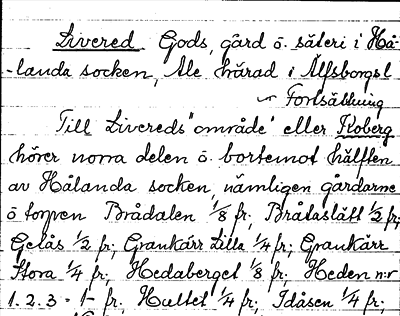 Livered. Gods, gård o. säteri i Hå-
-landa socken, Ale härad i Älfsborgsl
Fortsättning
Till Livereds "område" eller Koberg
hörer norra delen o. bortemot hälften
av Hålanda socken, nämligen gårdarne
o torpen Brådalen 1/8 fr; Bråtaslätt 1/2 fr;
Gelås 1/2 fr; Grankärr Lilla 1/4 fr; Grankärr
Stora 1/4 fr; Hedaberget 1/8 fr; Heden n:r
1. 2. 3 = 1- fr; Hultet 1/4 fr; Idåsen 1/4 fr;